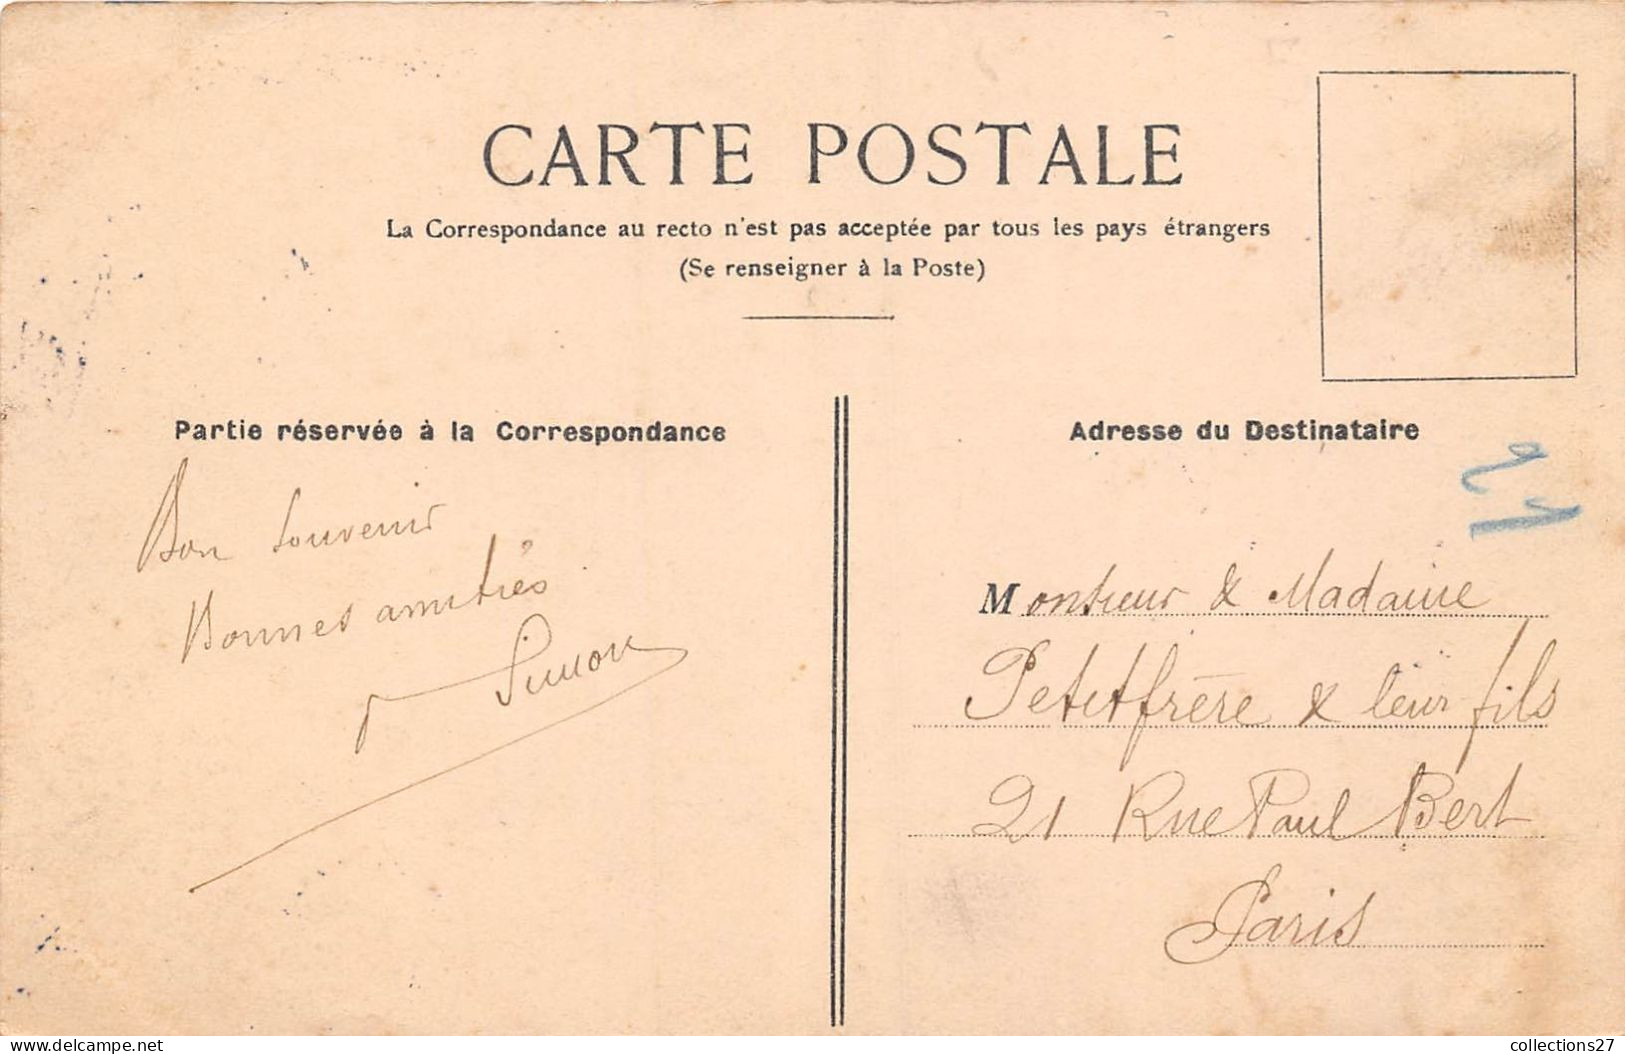 CARTE POSTALE
La Correspondance au recto n'est pas acceptée par tous les pays étrangers
(Se renseigner à la Poste)
Partie réservée à la Correspondance
Bon souvenir
Bonnes amitiés
Simon
Adresse du Destinataire
21
Monsieur & Madame
Petitfrère & leur fils
21 Rue Paul Bert
Paris
delcampe.net
collections27